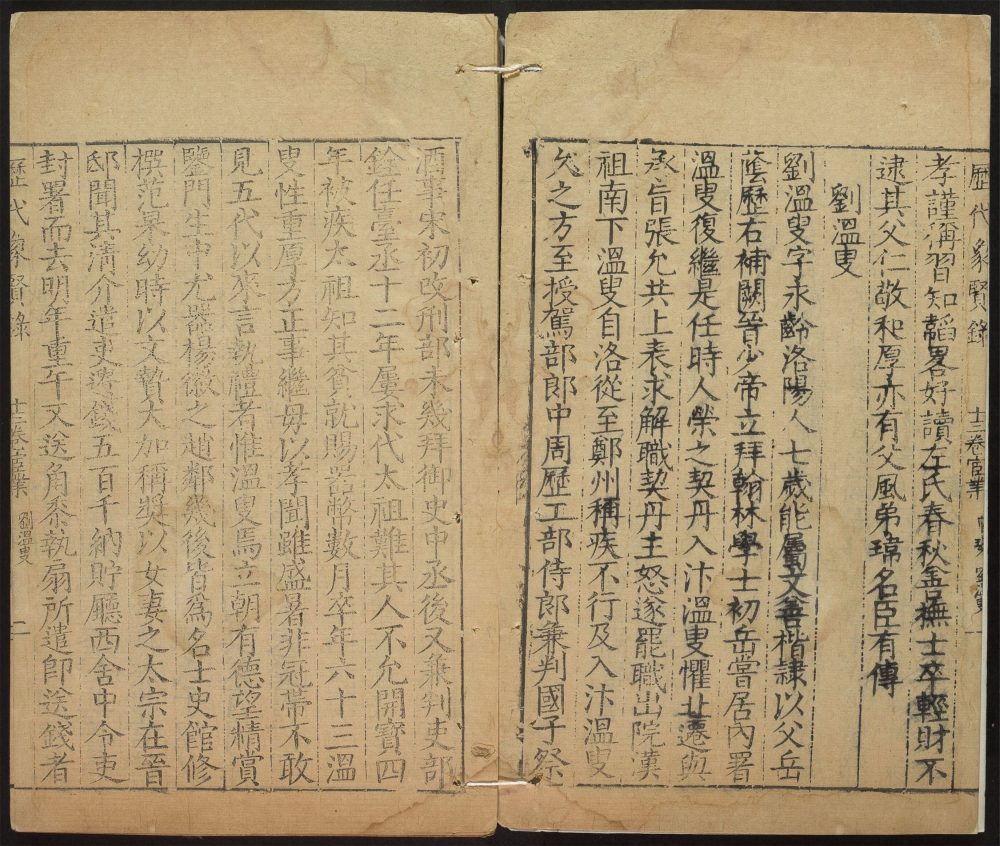 歷代象賢錄 十三卷宦業 一
孝謹彌習知韜畧好讀左氏春秋盖撫士卒輕財不
逮其父仁敬和厚亦有父風弟瑋名臣有傳
劉溫叟
劉溫叟字永齡洛陽人七歲能屬文善楷隸以父岳
蔭歷右補闕晉少帝立拜翰林學士初岳嘗居內署
溫叟復繼是任時人榮之契丹入汴溫叟懼北遷與
承旨張允共上表求解職契丹主怒遂罷職出院漢
祖南下溫叟自洛從至鄭州稱疾不行及入汴溫叟
久之方至授駕部郎中周歷工部侍郎兼判國子祭
酒事宋初改刑部未幾拜御史中丞後又兼判吏部
銓任臺丞十二年屢求代太祖難其人不允開寶四
年被疾太祖知其貧就賜器幣數月卒年六十三溫
叟性重厚方正事繼母以孝聞雖盛暑非冠帶不敢
見五代以來言執禮者惟溫叟焉立朝有德望精賞
鑒門生中尤器楊徽之趙鄰幾後皆爲名士史館修
撰范杲幼時以文贄大加稱獎以女妻之太宗在晉
邸聞其清介遣吏遺錢五百千納貯廳西舍中令吏
封署而去明年重午又送角黍執扇所遣即送錢者
歷代象賢錄 十三卷宦業 劉溫叟 二